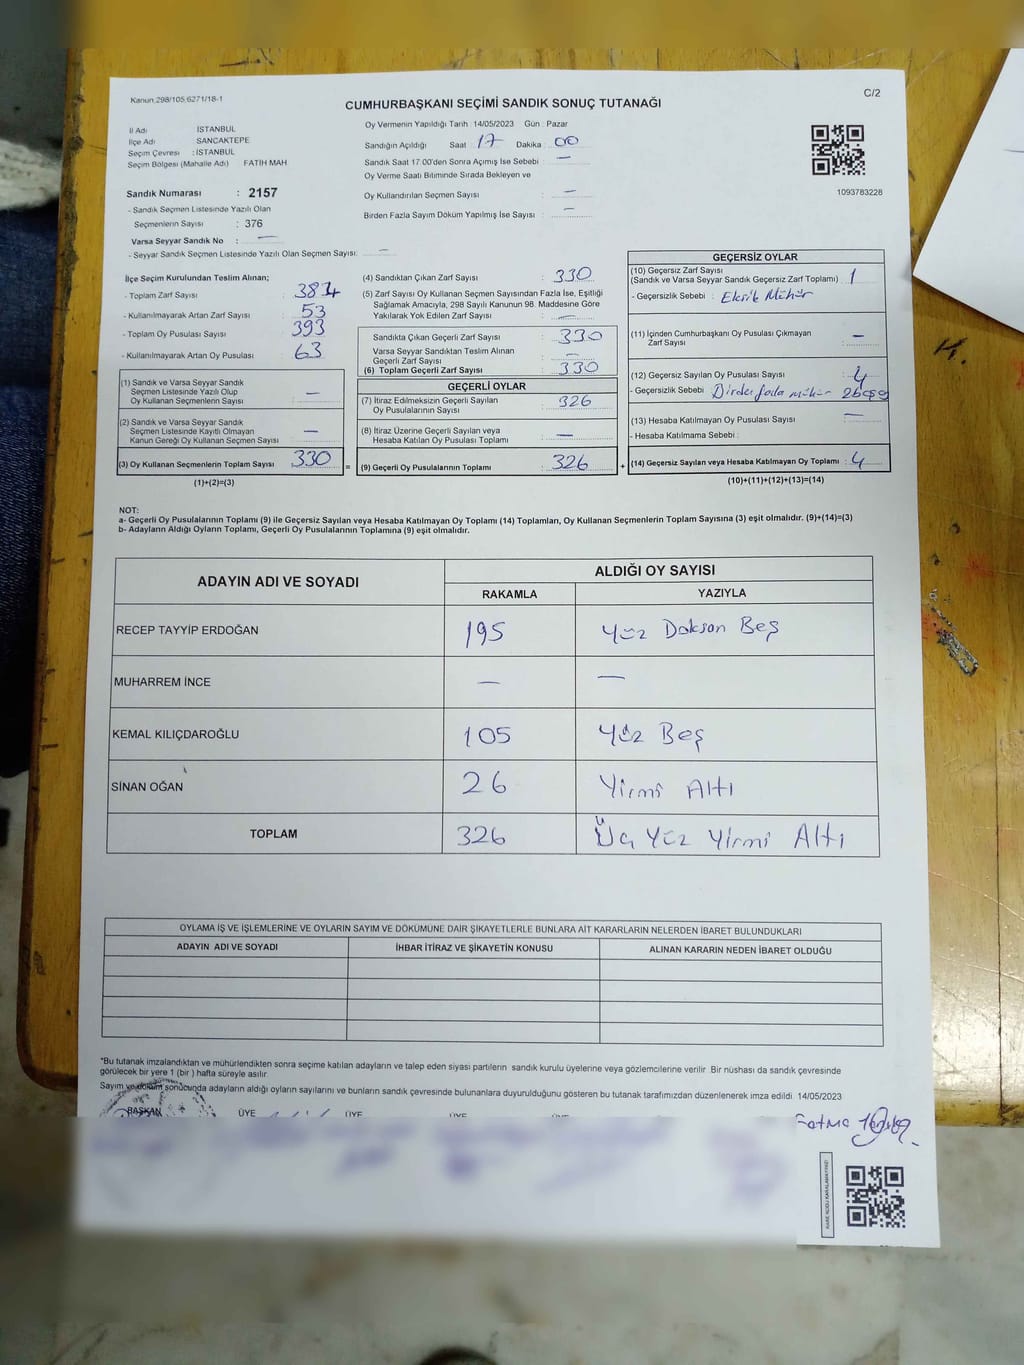 Kanun 298/105,6271/18-1
C/2
CUMHURBAŞKANI SEÇİMİ SANDIK SONUÇ TUTANAĞI
İl Adı İSTANBUL
İlçe Adı SANCAKTEPE
Seçim Çevresi : İSTANBUL
Seçim Bölgesi (Mahalle Adı) FATİH MAH
Sandık Numarası : 2157
- Sandık Seçmen Listesinde Yazılı Olan
Seçmenlerin Sayısı : 376
Varsa Seyyar Sandık No : —
- Seyyar Sandık Seçmen Listesinde Yazılı Olan Seçmen Sayısı: —
Oy Vermenin Yapıldığı Tarih :14/05/2023 Gün : Pazar
Sandığın Açıldığı Saat 17 Dakika 00
Sandık Saat 17.00'den Sonra Açımış İse Sebebi : —
Oy Verme Saati Bitiminde Sırada Bekleyen ve
Oy Kullandırılan Seçmen Sayısı : —
Birden Fazla Sayım Döküm Yapılmış İse Sayısı : —
1093783228
İlçe Seçim Kurulundan Teslim Alınan;
- Toplam Zarf Sayısı :
- Kullanılmayarak Artan Zarf Sayısı : 53
- Toplam Oy Pusulası Sayısı : 393
- Kullanılmayarak Artan Oy Pusulası : 63
(1) Sandık ve Varsa Seyyar Sandık
Seçmen Listesinde Yazılı Olup
Oy Kullanan Seçmenlerin Sayısı : —
(2) Sandık ve Varsa Seyyar Sandık
Seçmen Listesinde Kayıtlı Olmayan
Kanun Gereği Oy Kullanan Seçmen Sayısı : —
(3) Oy Kullanan Seçmenlerin Toplam Sayısı : 330 =
(1)+(2)=(3)
(4) Sandıktan Çıkan Zarf Sayısı : 330
(5) Zarf Sayısı Oy Kullanan Seçmen Sayısından Fazla İse, Eşitliği
Sağlamak Amacıyla, 298 Sayılı Kanunun 98. Maddesine Göre
Yakılarak Yok Edilen Zarf Sayısı : —
Sandıkta Çıkan Geçerli Zarf Sayısı : 330
Varsa Seyyar Sandıktan Teslim Alınan
Geçerli Zarf Sayısı : —
(6) Toplam Geçerli Zarf Sayısı : 330
GEÇERLİ OYLAR
(7) İtiraz Edilmeksizin Geçerli Sayılan
Oy Pusulalarının Sayısı : 326
(8) İtiraz Üzerine Geçerli Sayılan veya
Hesaba Katılan Oy Pusulası Toplamı : —
(9) Geçerli Oy Pusulalarının Toplamı : 326 +
GEÇERSİZ OYLAR
(10) Geçersiz Zarf Sayısı
(Sandık ve Varsa Seyyar Sandık Geçersiz Zarf Toplamı) : 1
- Geçersizlik Sebebi : Eksik Mühür
(11) İçinden Cumhurbaşkanı Oy Pusulası Çıkmayan
Zarf Sayısı : —
(12) Geçersiz Sayılan Oy Pusulası Sayısı : 4
- Geçersizlik Sebebi : Birden fazla mühür
(13) Hesaba Katılmayan Oy Pusulası Sayısı : —
- Hesaba Katılmama Sebebi :
(14) Geçersiz Sayılan veya Hesaba Katılmayan Oy Toplamı : 4
(10)+(11)+(12)+(13)=(14)
NOT:
a- Geçerli Oy Pusulalarının Toplamı (9) ile Geçersiz Sayılan veya Hesaba Katılmayan Oy Toplamı (14) Toplamları, Oy Kullanan Seçmenlerin Toplam Sayısına (3) eşit olmalıdır. (9)+(14)=(3)
b- Adayların Aldığı Oyların Toplamı, Geçerli Oy Pusulalarının Toplamına (9) eşit olmalıdır.
ADAYIN ADI VE SOYADI ALDIĞI OY SAYISI
RAKAMLA YAZIYLA
RECEP TAYYİP ERDOĞAN 195 Yüz Doksan Beş
MUHARREM İNCE — —
KEMAL KILIÇDAROĞLU 105 Yüz Beş
SİNAN OĞAN 26 Yirmi Altı
TOPLAM 326 Üç Yüz Yirmi Altı
OYLAMA İŞ VE İŞLEMLERİNE VE OYLARIN SAYIM VE DÖKÜMÜNE DAİR ŞİKAYETLERLE BUNLARA AİT KARARLARIN NELERDEN İBARET BULUNDUKLARI
ADAYIN ADI VE SOYADI İHBAR İTİRAZ VE ŞİKAYETİN KONUSU ALINAN KARARIN NEDEN İBARET OLDUĞU
*Bu tutanak imzalandıktan ve mühürlendikten sonra seçime katılan adayların ve talep eden siyasi partilerin sandık kurulu üyelerine veya gözlemcilerine verilir. Bir nüshası da sandık çevresinde
görülecek bir yere 1 (bir ) hafta süreyle asılır.
Sayım ve döküm sonucunda adayların aldığı oyların sayılarını ve bunların sandık çevresinde bulunanlara duyurulduğunu gösteren bu tutanak tarafımızdan düzenlenerek imza edildi. 14/05/2023
BAŞKAN ÜYE ÜYE ÜYE
Fatma